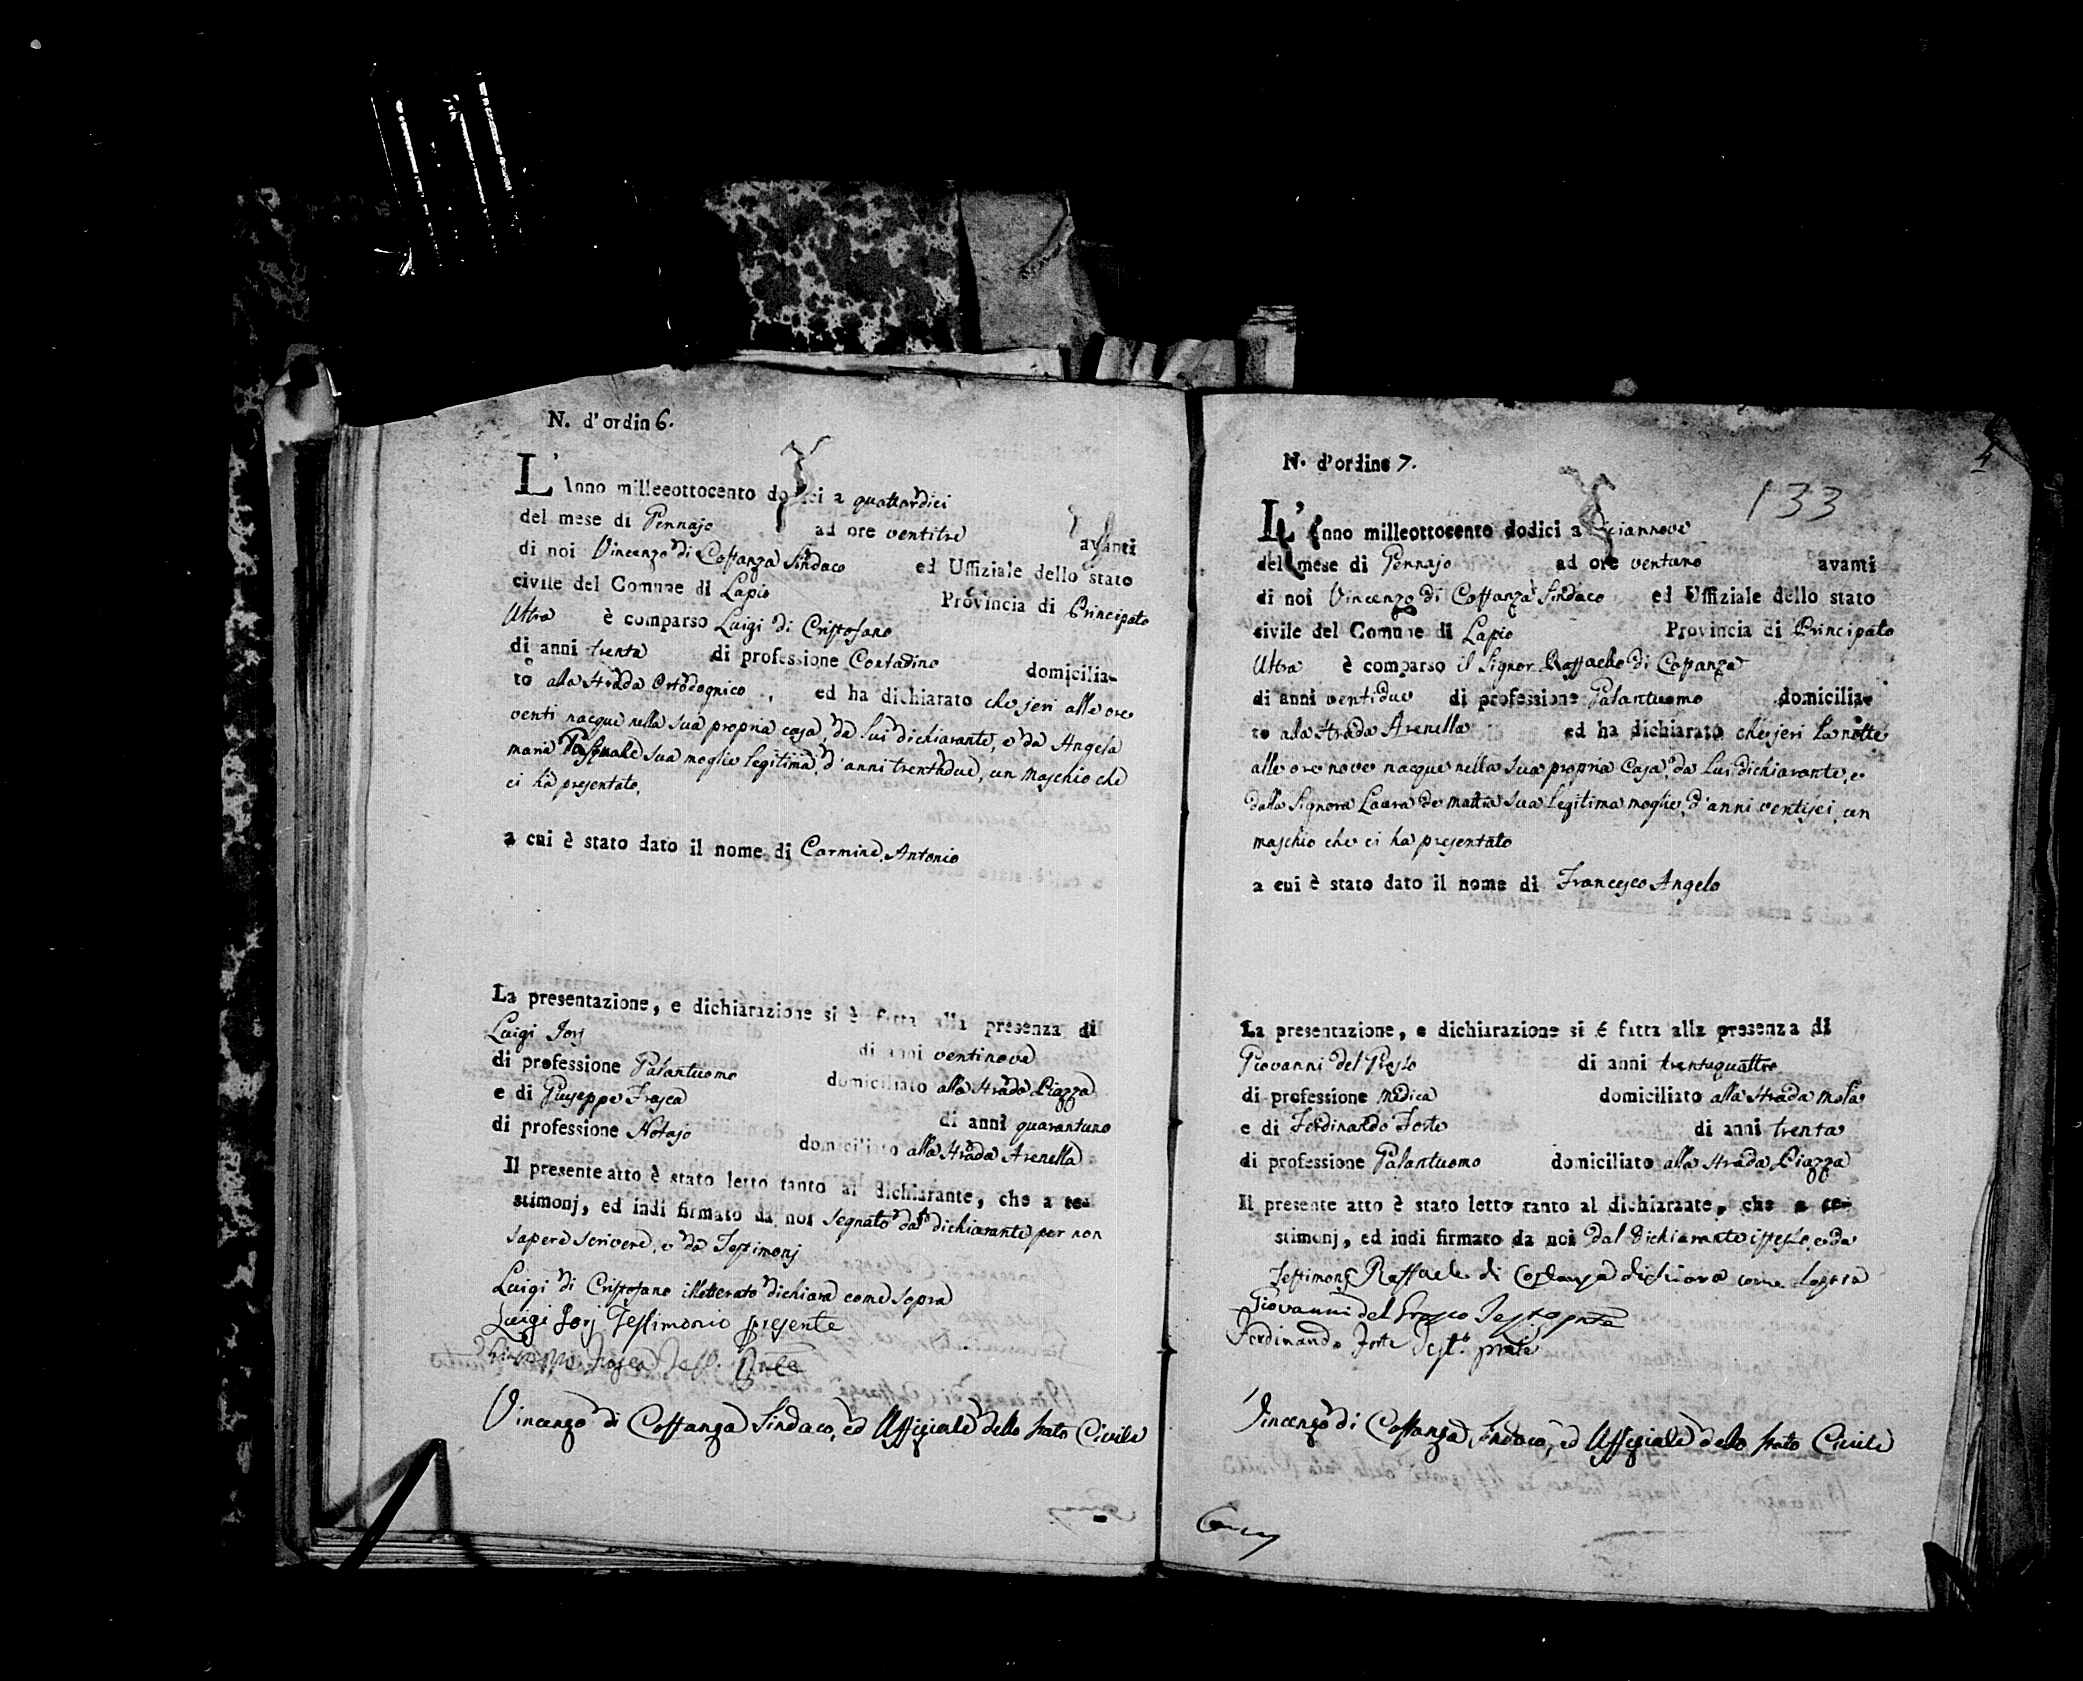 N. d'ordin 6.
L'Anno milleeottocento dodici a quattordici
del mese di Gennajo ad ore ventitre avanti
di noi Vincenzo di Costanza Sindaco ed Uffiziale dello stato
civile del Comune di Lapio Provincia di Principato
Ultra è comparso Luigi di Cristofano
di anni trenta di professione Contadino domicilia-
to alla Strada Ortodognico, ed ha dichiarato che jeri alle ore
venti nacque nella sua propria casa, da lui dichiarante, e da Angela
maria Pasquale sua moglie legitima, d'anni trentadue, un maschio che
ci ha presentato,
a cui è stato dato il nome di Carmine, Antonio
La presentazione, e dichiarazione si è fatta alla presenza di
Luigi Jorj di anni ventinove
di professione Galantuomo domiciliato alla Strada Piazza
e di Giuseppe Frasca di anni quarantuno
di professione Notajo domiciliato alla Strada Arenella
Il presente atto è stato letto tanto al dichiarante, che a te-
stimonj, ed indi firmato da noi segnato dal dichiarante per non
sapere scrivere, e da Testimonj
Luigi di Cristofano illetterato dichiara come sopra
Luigi Jorj Testimonio presente
Giuseppe Frasca Test. pnte
Vincenzo di Costanza Sindaco, ed Uffiziale dello Stato Civile
4
133
N. d'ordine 7.
L'Anno milleottocento dodici a diciannove
del mese di Gennajo ad ore ventuno avanti
di noi Vincenzo di Costanza Sindaco ed Uffiziale dello stato
civile del Comune di Lapio Provincia di Principato
Ultra è comparso il Signor Raffaele di Costanza
di anni ventidue di professione Galantuomo domicilia-
to alla Strada Arenella ed ha dichiarato che jeri la notte
alle ore nove nacque nella sua propria casa, da lui dichiarante, e
dalla Signora Laura de Mattia sua legitima moglie, d'anni ventisei, un
maschio che ci ha presentato
a cui è stato dato il nome di Francesco Angelo
La presentazione, e dichiarazione si è fatta alla presenza di
Giovanni del Grosso di anni trentaquattro
di professione Medica domiciliato alla Strada Mola
e di Ferdinando Forte di anni trenta
di professione Galantuomo domiciliato alla Strada Piazza
Il presente atto è stato letto tanto al dichiarante, che a te-
stimonj, ed indi firmato da noi dal dichiarante istesso, e da
Testimonj Raffaele di Costanza dichiara come sopra
Giovanni del Grosso Test. pnte
Ferdinando Forte Test. pnte
Vincenzo di Costanza Sindaco, ed Uffiziale dello Stato Civile